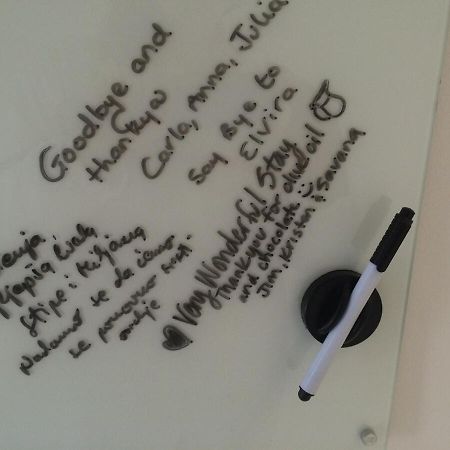 Goodbye and
thankyou
Carla, Anna, Julia
Say Bye to
Elvira
Very Wonderful Stay
Thankyou for olive oil
and chocolate :)
Jim, Kristen & Savana
Stipe i
Nadamo se da ćemo
se ponovno sresti.
ovdje